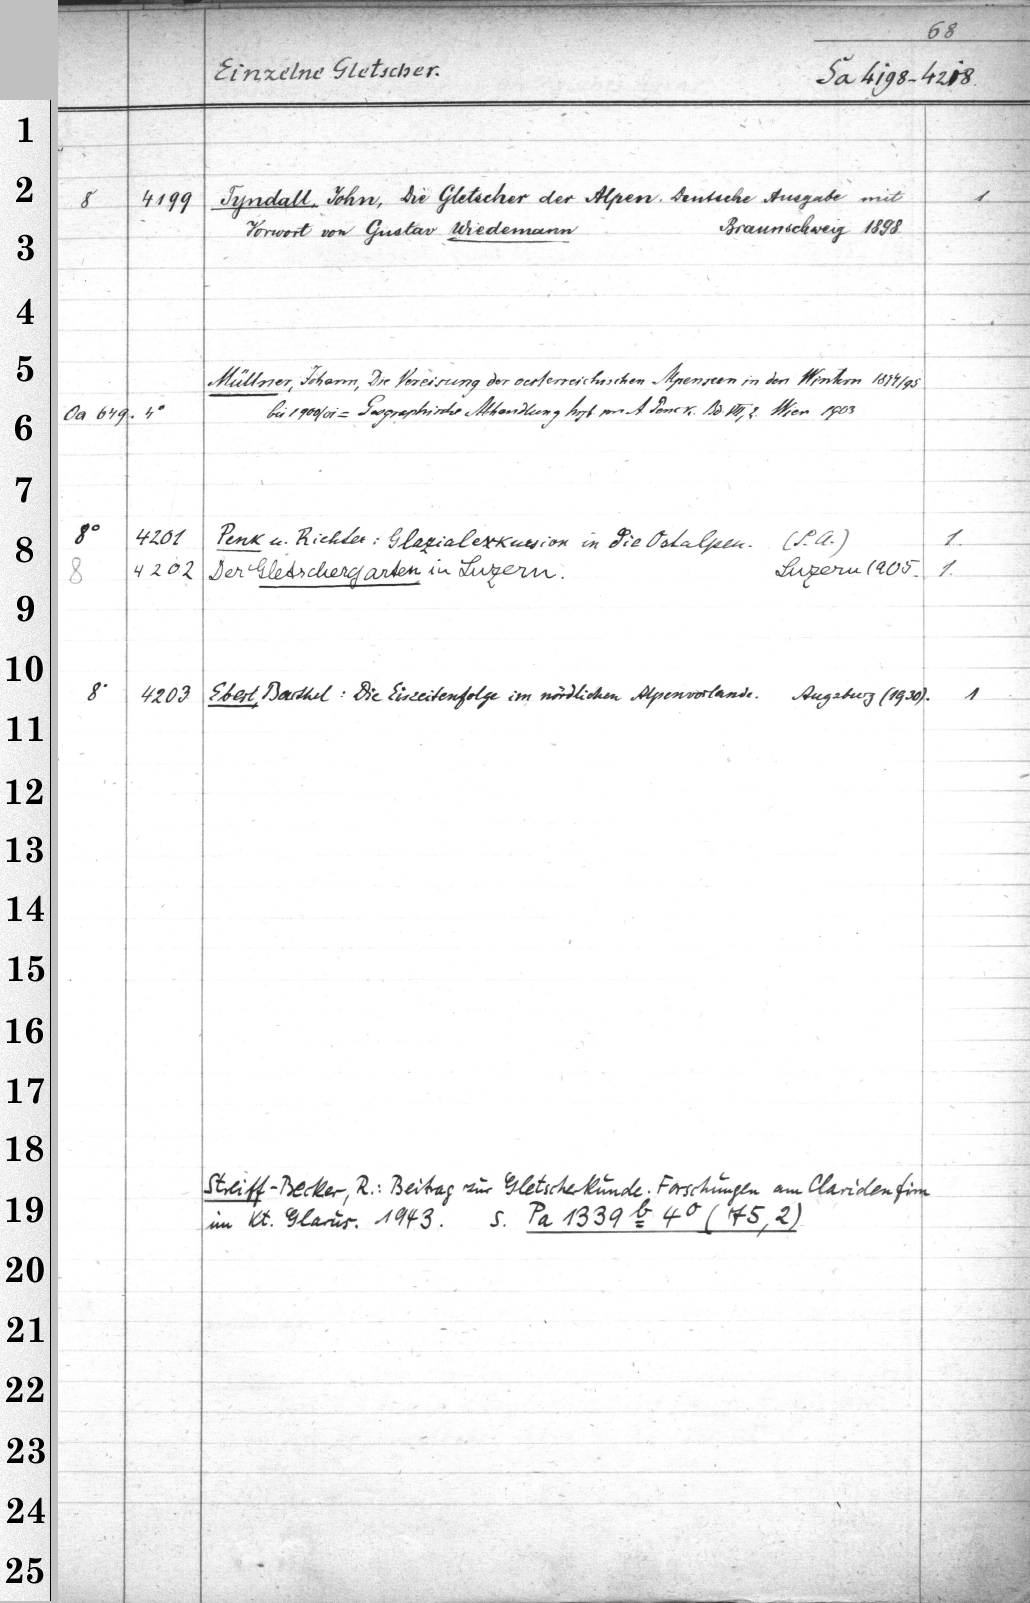 68
Einzelne Gletscher. Sa 4198-4218
1
2
8 4199 Tyndall, John, Die Gletscher der Alpen. Deutsche Ausgabe mit 1
Vorwort von Gustav Wiedemann Braunschweig 1898
3
4
5
Müllner, Johann, Die Vereisung der oesterreichischen Alpenseen in den Wintern 1894/95
6
Oa 649. 4° bis 1900/01 = Geographische Abhandlung hrsg. von A Penck. Bd. VII, 2. Wien 1903
7
8
8° 4201 Penk u. Richter: Glazialexkursion in die Ostalpen. (S.A.) 1.
8 4202 Der Gletschergarten in Luzern. Luzern 1905. 1.
9
10
8° 4203 Eberl, Barthel: Die Eiszeitenfolge im nördlichen Alpenvorlande. Augsburg (1930). 1
11
12
13
14
15
16
17
18
Streiff-Becker, R.: Beitrag zur Gletscherkunde. Forschungen am Claridenfirn
19
im Kt. Glarus. 1943. s. Pa 1339 b 4° (75,2)
20
21
22
23
24
25